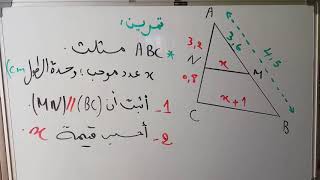 تمرين:
* ABC مثلث.
x عدد موجب؛ وحدة الطول (cm)
1- أثبت أن (MN)//(BC)
2- أحسب قيمة x
A
3,2
3,6
4,5
N
M
0,8
x
C
x+1
B